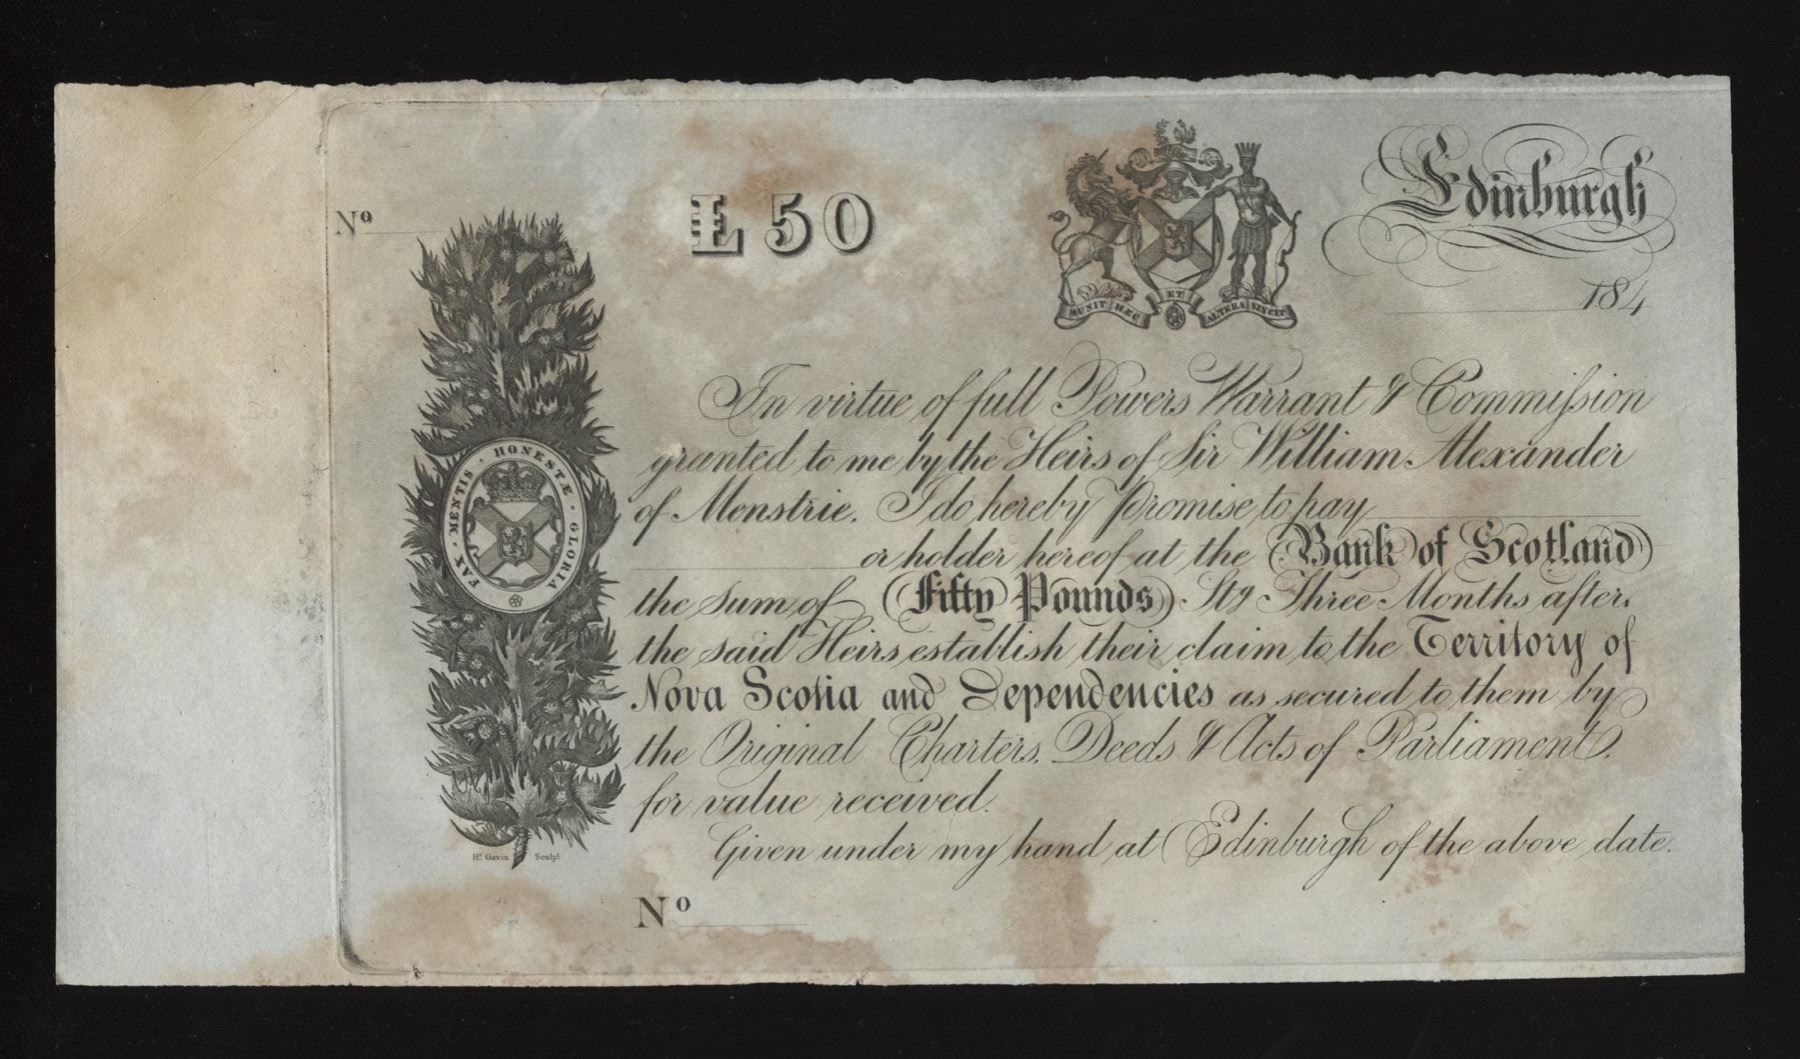 Edinburgh
Nº
£50
184
MUNIT HÆC ET ALTERA VINCIT
In virtue of full Powers Warrant & Commiſsion
granted to me by the Heirs of Sir William Alexander
of Menstrie. I do hereby promise to pay
or holder hereof at the Bank of Scotland
the sum of Fifty Pounds Stg Three Months after
the said Heirs establish their claim to the Territory of
Nova Scotia and Dependencies as secured to them by
the Original Charters, Deeds & Acts of Parliament.
for value received.
Given under my hand at Edinburgh of the above date.
Nº
FAX · MENTIS · HONESTÆ · GLORIA
Hr. Gavin Sculpt